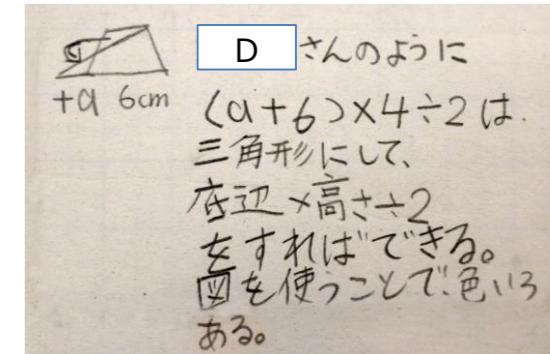 D さんのように
+a 6cm
(a+6)×4÷2は
三角形にして、
底辺×高さ÷2
をすればできる。
図を使うことで、色いろ
ある。